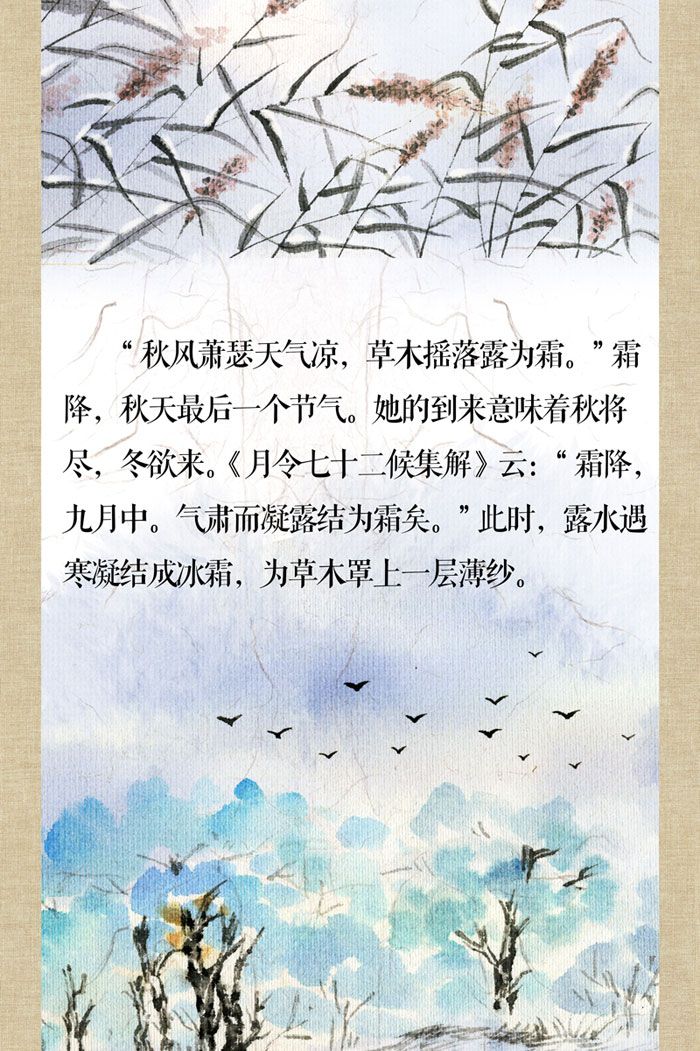 “秋风萧瑟天气凉，草木摇落露为霜。”霜
降，秋天最后一个节气。她的到来意味着秋将
尽，冬欲来。《月令七十二候集解》云：“霜降，
九月中。气肃而凝露结为霜矣。”此时，露水遇
寒凝结成冰霜，为草木罩上一层薄纱。